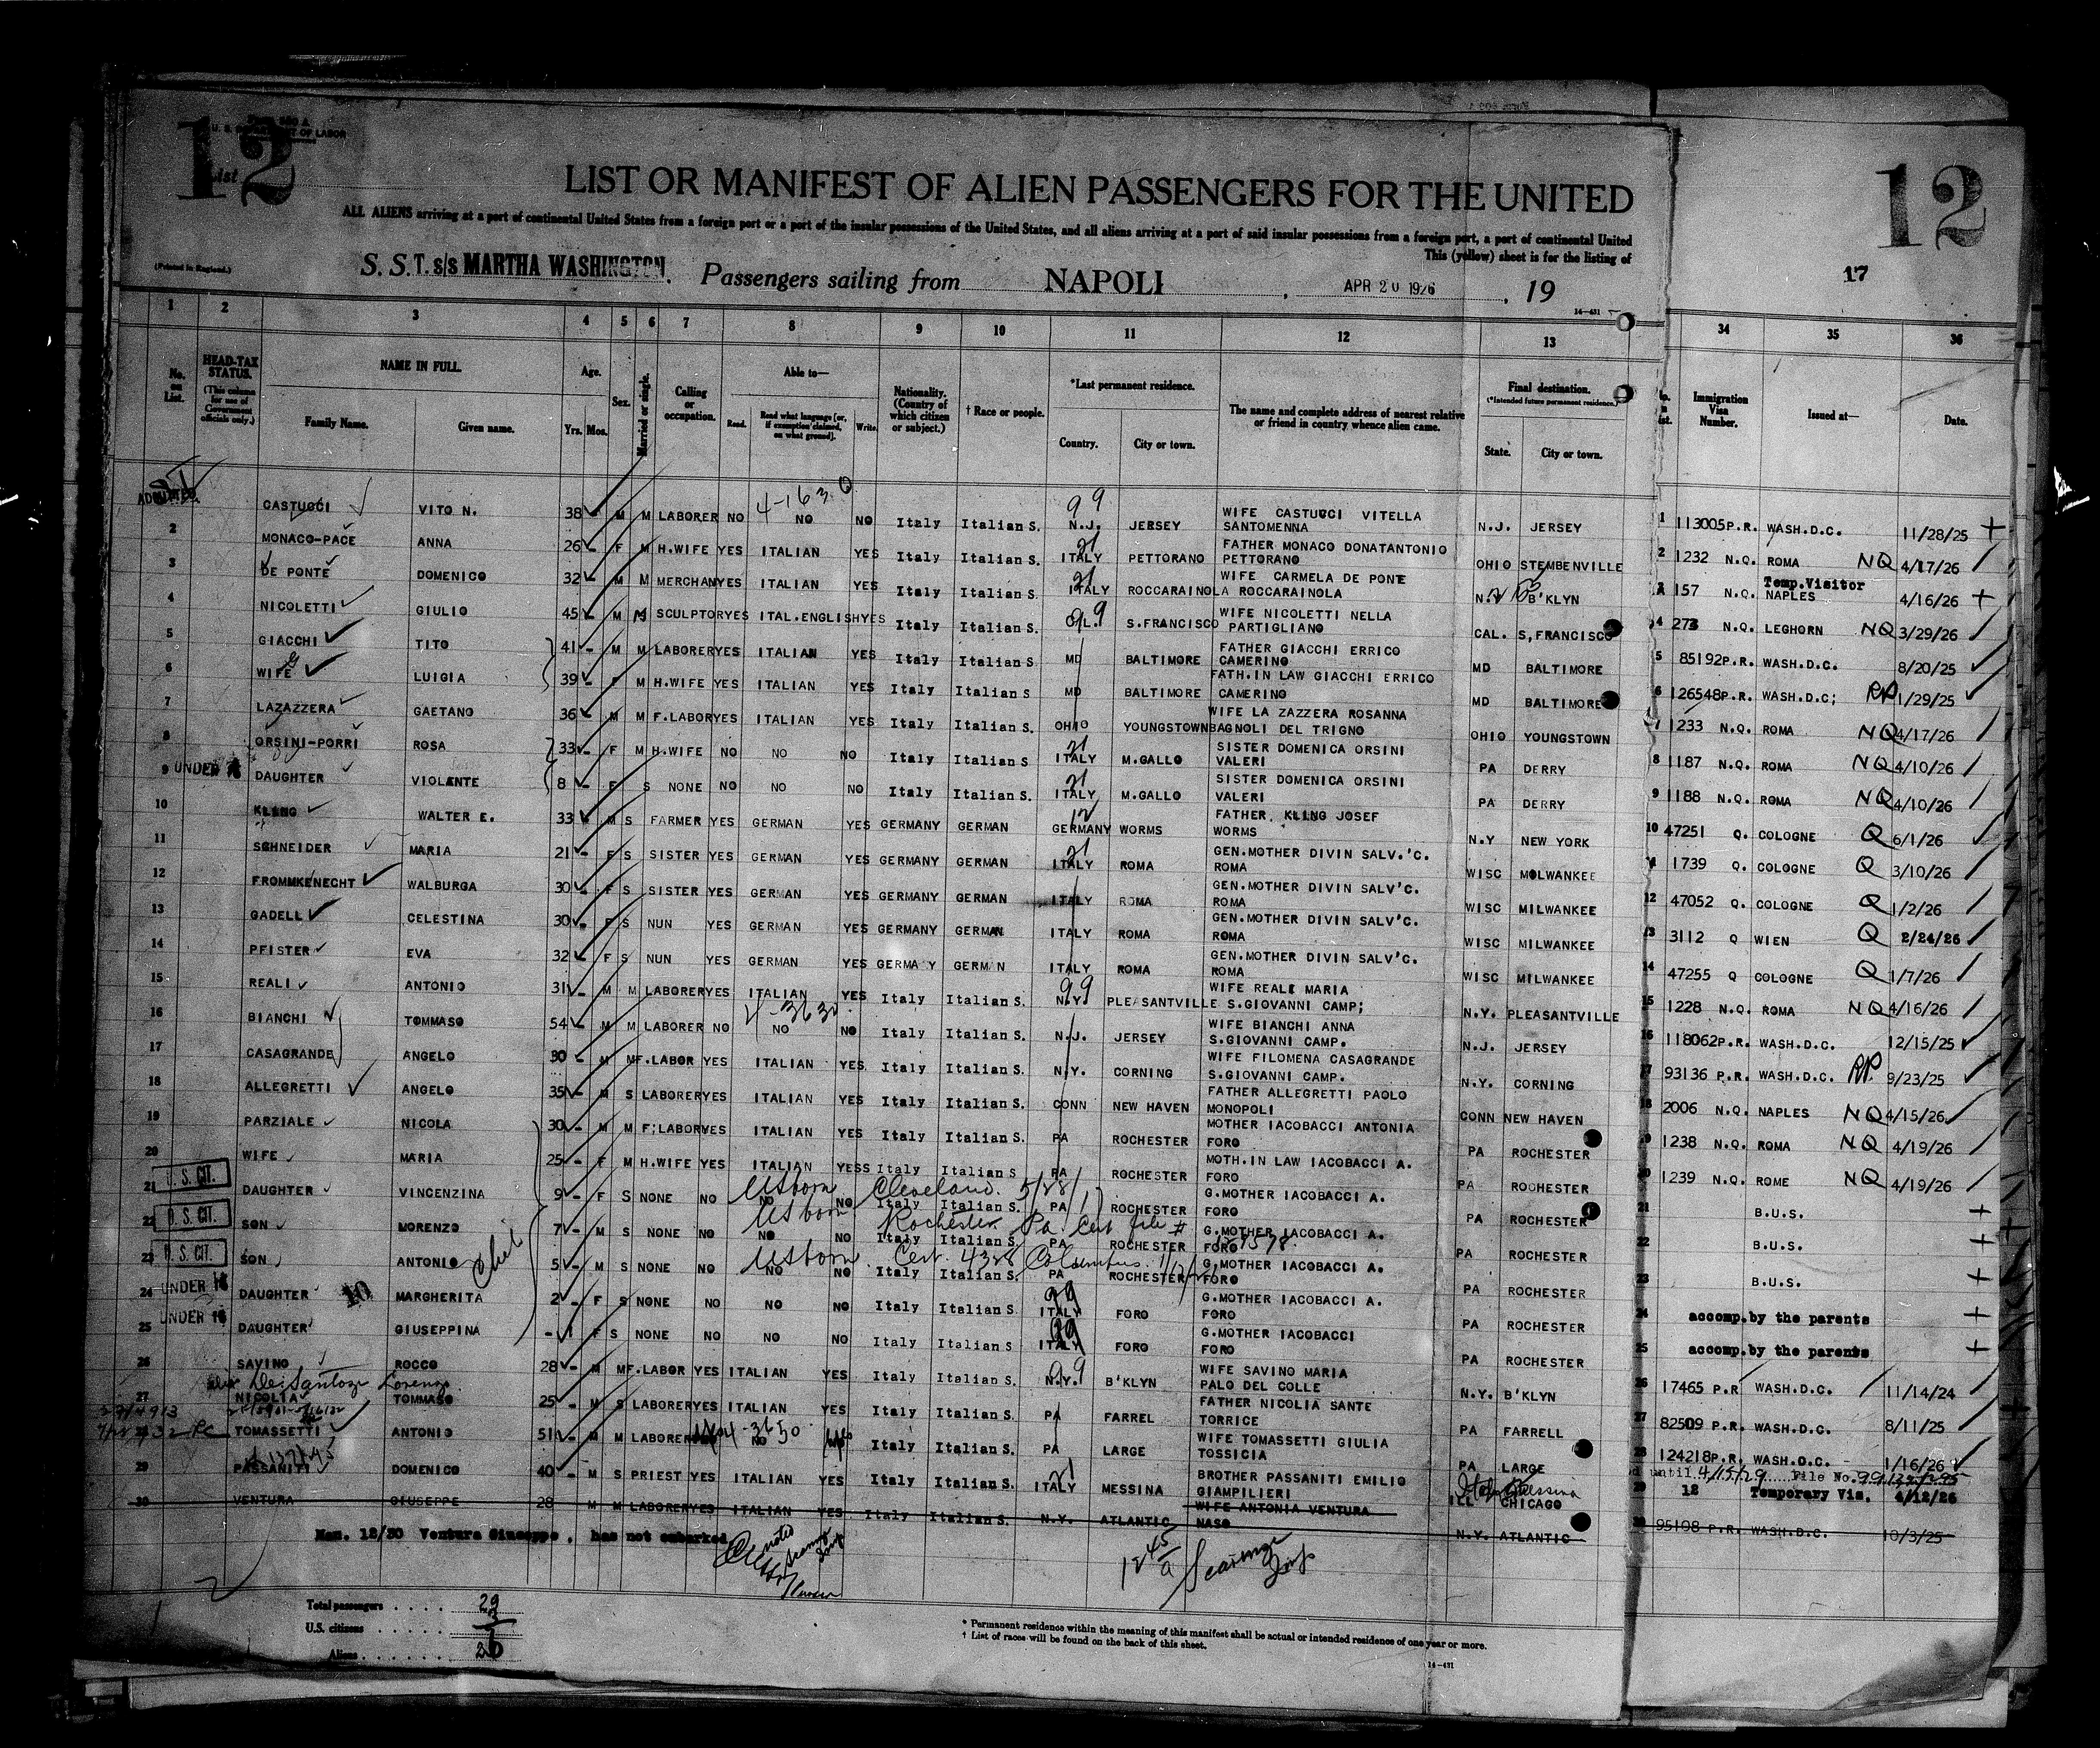 12
Form 500 A
U. S. DEPARTMENT OF LABOR
List
LIST OR MANIFEST OF ALIEN PASSENGERS FOR THE UNITED
12
ALL ALIENS arriving at a port of continental United States from a foreign port or a port of the insular possessions of the United States, and all aliens arriving at a port of said insular possessions from a foreign port, a port of continental United
This (yellow) sheet is for the listing of
(Printed in England.)
S. S. T. s/s MARTHA WASHINGTON. Passengers sailing from NAPOLI, APR 20 1926, 19
17
14—431
1 2 3 4 5 6 7 8 9 10 11 12 13 34 35 36
No. on List.
HEAD-TAX STATUS. (This column for use of Government officials only.)
NAME IN FULL.
Family Name. Given name.
Age. Yrs. Mos.
Sex.
Married or single.
Calling or occupation.
Able to— Read. Read what language [or, if exemption claimed, on what ground]. Write.
Nationality. (Country of which citizen or subject.)
† Race or people.
*Last permanent residence. Country. City or town.
The name and complete address of nearest relative or friend in country whence alien came.
Final destination. (*Intended future permanent residence.) State. City or town.
Immigration Visa Number.
Issued at—
Date.
ADMITTED CASTUCCI VITO N. 38 M M LABORER NO 4-1630 NO NO Italy Italian S. 99 N.J. JERSEY WIFE CASTUCCI VITELLA SANTOMENNA N.J. JERSEY 1 113005 P.R. WASH.D.C. 11/28/25
2 MONACO-PACE ANNA 26 F M H.WIFE YES ITALIAN YES Italy Italian S. 21 ITALY PETTORANO FATHER MONACO DONATANTONIO PETTORANO OHIO STEMBENVILLE 2 1232 N.Q. ROMA NQ 4/17/26
3 DE PONTE DOMENICO 32 M M MERCHAN YES ITALIAN YES Italy Italian S. 21 ITALY ROCCARAINOLA WIFE CARMELA DE PONTE ROCCARAINOLA N.Y B'KLYN 3 157 N.Q. Temp.Visitor NAPLES 4/16/26
4 NICOLETTI GIULIO 45 M M SCULPTOR YES ITAL.ENGLISH YES Italy Italian S. 99 S.FRANCISCO WIFE NICOLETTI NELLA PARTIGLIANO CAL. S,FRANCISCO 4 273 N.Q. LEGHORN NQ 3/29/26
5 GIACCHI TITO 41 M M LABORER YES ITALIAN YES Italy Italian S. MD BALTIMORE FATHER GIACCHI ERRICO CAMERINO MD BALTIMORE 5 85192 P.R. WASH.D.C. 8/20/25
6 WIFE LUIGIA 39 F M H.WIFE YES ITALIAN YES Italy Italian S MD BALTIMORE FATH.IN LAW GIACCHI ERRICO CAMERINO MD BALTIMORE 6 126548 P.R. WASH.D.C; RP 1/29/25
7 LAZAZZERA GAETANO 36 M M F.LABOR YES ITALIAN YES Italy Italian S. OHIO YOUNGSTOWN WIFE LA ZAZZERA ROSANNA BAGNOLI DEL TRIGNO OHIO YOUNGSTOWN 7 1233 N.Q. ROMA NQ 4/17/26
8 ORSINI-PORRI ROSA 33 F M H.WIFE NO NO NO Italy Italian S. 21 ITALY M.GALLO SISTER DOMENICA ORSINI VALERI PA DERRY 8 1187 N.Q. ROMA NQ 4/10/26
9 UNDER 16 DAUGHTER VIOLANTE 8 F S NONE NO NO NO Italy Italian S. 21 ITALY M.GALLO SISTER DOMENICA ORSINI VALERI PA DERRY 9 1188 N.Q. ROMA NQ 4/10/26
10 KLENG WALTER E. 33 M S FARMER YES GERMAN YES GERMANY GERMAN 12 GERMANY WORMS FATHER KLING JOSEF WORMS N.Y NEW YORK 10 47251 Q. COLOGNE Q 6/1/26
11 SCHNEIDER MARIA 21 F S SISTER YES GERMAN YES GERMANY GERMAN 21 ITALY ROMA GEN.MOTHER DIVIN SALV.'C. ROMA WISC MOLWANKEE 1739 Q. COLOGNE Q 3/10/26
12 FROMMKENECHT WALBURGA 30 F S SISTER YES GERMAN YES GERMANY GERMAN ITALY ROMA GEN.MOTHER DIVIN SALV'C. ROMA WISC MILWANKEE 12 47052 Q. COLOGNE Q 1/2/26
13 GADELLI CELESTINA 30 F S NUN YES GERMAN YES GERMANY GERMAN ITALY ROMA GEN.MOTHER DIVIN SALV'C. ROMA WISC MILWANKEE 13 3112 Q WIEN Q 2/24/26
14 PFISTER EVA 32 F S NUN YES GERMAN YES GERMA Y GERM N ITALY ROMA GEN.MOTHER DIVIN SALV'C. ROMA WISC MILWANKEE 14 47255 Q COLOGNE Q 1/7/26
15 REALI ANTONIO 31 M M LABORER YES ITALIAN YES Italy Italian S. 99 N.Y. PLEASANTVILLE WIFE REALE MARIA S.GIOVANNI CAMP; N.Y. PLEASANTVILLE 15 1228 N.Q. ROMA NQ 4/16/26
16 BIANCHI TOMMASO 54 M M LABORER NO 4-3630 NO NO Italy Italian S. N.J. JERSEY WIFE BIANCHI ANNA S.GIOVANNI CAMP. N.J. JERSEY 16 118062 P.R. WASH.D.C. 12/15/25
17 CASAGRANDE ANGELO 30 M M F.LABOR YES ITALIAN YES Italy Italian S. N.Y. CORNING WIFE FILOMENA CASAGRANDE S.GIOVANNI CAMP. N.Y. CORNING 17 93136 P.R. WASH.D.C. RP. 9/23/25
18 ALLEGRETTI ANGELO 35 M S LABORER YES ITALIAN YES Italy Italian S. CONN NEW HAVEN FATHER ALLEGRETTI PAOLO MONOPOLI CONN NEW HAVEN 18 2006 N.Q. NAPLES NQ 4/15/26
19 PARZIALE NICOLA 30 M M F;LABOR YES ITALIAN YES Italy Italian S. PA ROCHESTER MOTHER IACOBACCI ANTONIA FORO PA ROCHESTER 19 1238 N.Q. ROMA NQ 4/19/26
20 WIFE MARIA 25 F M H.WIFE YES ITALIAN YESS Italy Italian S PA ROCHESTER MOTH.IN LAW IACOBACCI A. FORO PA ROCHESTER 20 1239 N.Q. ROME NQ 4/19/26
U. S. CIT. 21 DAUGHTER VINCENZINA 9 F S NONE NO NO NO US born Cleveland. Italy Italian S. PA ROCHESTER G.MOTHER IACOBACCI A. FORO PA ROCHESTER 21 B.U.S.
U. S. CIT. 22 SON MORENZO 7 M S NONE NO NO NO US born Rochester Pa. Cert file # Italy Italian S. PA ROCHESTER G.MOTHER IACOBACCI A. FORO PA ROCHESTER 22 B.U.S.
U. S. CIT. 23 SON ANTONIO 5 M S NONE NO NO NO US born Cert. 4328 Columbus Italy Italian S. PA ROCHESTER G.MOTHER IACOBACCI A. FORO PA ROCHESTER 23 B.U.S.
UNDER 16 24 DAUGHTER MARGHERITA 2 F S NONE NO NO NO Italy Italian S. 99 ITALY FORO G.MOTHER IACOBACCI A. FORO PA ROCHESTER 24 accomp.by the parents
UNDER 16 25 DAUGHTER GIUSEPPINA - 1 F S NONE NO NO NO Italy Italian S. 99 ITALY FORO G.MOTHER IACOBACCI FORO PA ROCHESTER 25 accomp.by the parents
26 SAVINO ROCCO 28 M M F.LABOR YES ITALIAN YES Italy Italian S. 99 N.Y. B'KLYN WIFE SAVINO MARIA PALO DEL COLLE N.Y. B'KLYN 26 17465 P.R WASH.D.C. 11/14/24
De Santozi Lorenzo
27 NICOLIA TOMMASO 25 M S LABORER YES ITALIAN YES Italy Italian S. PA FARREL FATHER NICOLIA SANTE TORRICE PA FARRELL 27 82509 P.R. WASH.D.C. 8/11/25
TOMASSETTI ANTONIO 51 M M LABORER 4-3650 NO Italy Italian S. PA LARGE WIFE TOMASSETTI GIULIA TOSSICIA PA LARGE 28 124218 P.R. WASH.D.C. 1/16/26
until 4/15/29 File No.
29 PASSANITI DOMENICO 40 M S PRIEST YES ITALIAN YES Italy Italian S. 21 ITALY MESSINA BROTHER PASSANITI EMILIO GIAMPILIERI Italy Messina ILL CHICAGO 29 12 Temporary Vis. 4/12/26
30 VENTURA GIUSEPPE 28 M M LABORER YES ITALIAN YES Italy Italian S. N.Y. ATLANTIC WIFE ANTONIA VENTURA NASO N.Y. ATLANTIC 30 95198 P.R. WASH.D.C. 10/3/25
Nam. 12/30 Ventura Giuseppe, has not embarked
Total passengers . . . . 29
U.S. citizens . . . . . 3
Aliens . . . . . . . 26
* Permanent residence within the meaning of this manifest shall be actual or intended residence of one year or more.
† List of races will be found on the back of this sheet.
14—431